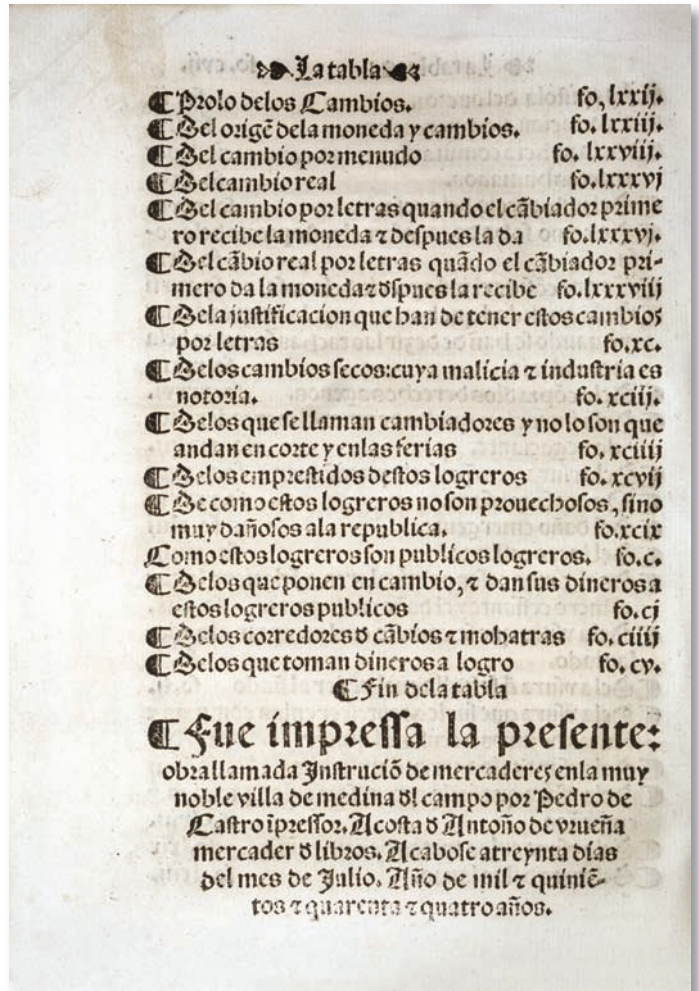 La tabla
¶ Prolo delos Cambios. fo, lxxij.
¶ Del origẽ dela moneda y cambios. fo. lxxiij.
¶ Del cambio por menudo fo. lxxviij.
¶ Del cambio real fo. lxxxvj
¶ Del cambio por letras quando el cãbiador prime
ro recibe la moneda ⁊ despues la da fo. lxxxvj.
¶ Del cãbio real por letras quãdo el cãbiador pri-
mero da la moneda ⁊ dſpues la recibe fo. lxxxviij
¶ Dela juſtificacion que han de tener eſtos cambios
por letras fo. xc.
¶ Delos cambios ſecos: cuya malicia ⁊ induſtria es
notoria. fo. xciij.
¶ Delos que ſe llaman cambiadores y no lo ſon que
andan en corte y enlas ferias fo. xciiij
¶ Delos empreſtidos deſtos logreros fo. xcvij
¶ De como eſtos logreros no ſon prouechoſos, ſino
muy dañoſos ala republica. fo. xcix
Como eſtos logreros ſon publicos logreros. fo. c.
¶ Delos que ponen en cambio, ⁊ dan ſus dineros a
eſtos logreros publicos fo. cj
¶ Delos corredores đ cãbios ⁊ mohatras fo. ciiij
¶ Delos que toman dineros a logro fo. cv.
¶ Fin dela tabla
¶ Fue impreſſa la preſente:
obra llamada Inſtruciõ de mercaderes enla muy
noble villa de medina đl campo por Pedro de
Caſtro ĩpreſſor. A coſta đ Antoño de vrueña
mercader đ libros. Acaboſe a treynta dias
del mes de Julio. Año de mil ⁊ quiniẽ-
tos ⁊ quarenta ⁊ quatro años.